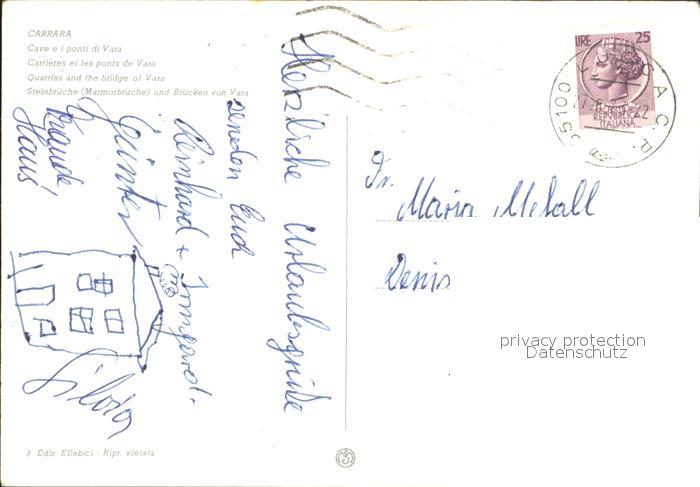 CARRARA
Cave e i ponti di Vara
Carrières et les ponts de Vara
Quarries and the bridge of Vara
Steinbrüche (Marmorbrüche) und Brücken von Vara
Herzliche Urlaubsgrüße
senden Euch
Reinhard + Irmgard.
Günter
Haus
Silvia
LIRE 25
REPVBBLICA
ITALIANA
55100
LUCCA C.P.
Fr.
Maria
Denis
privacy protection
Datenschutz
8 Ediz. Ellebici - Ripr. vietata